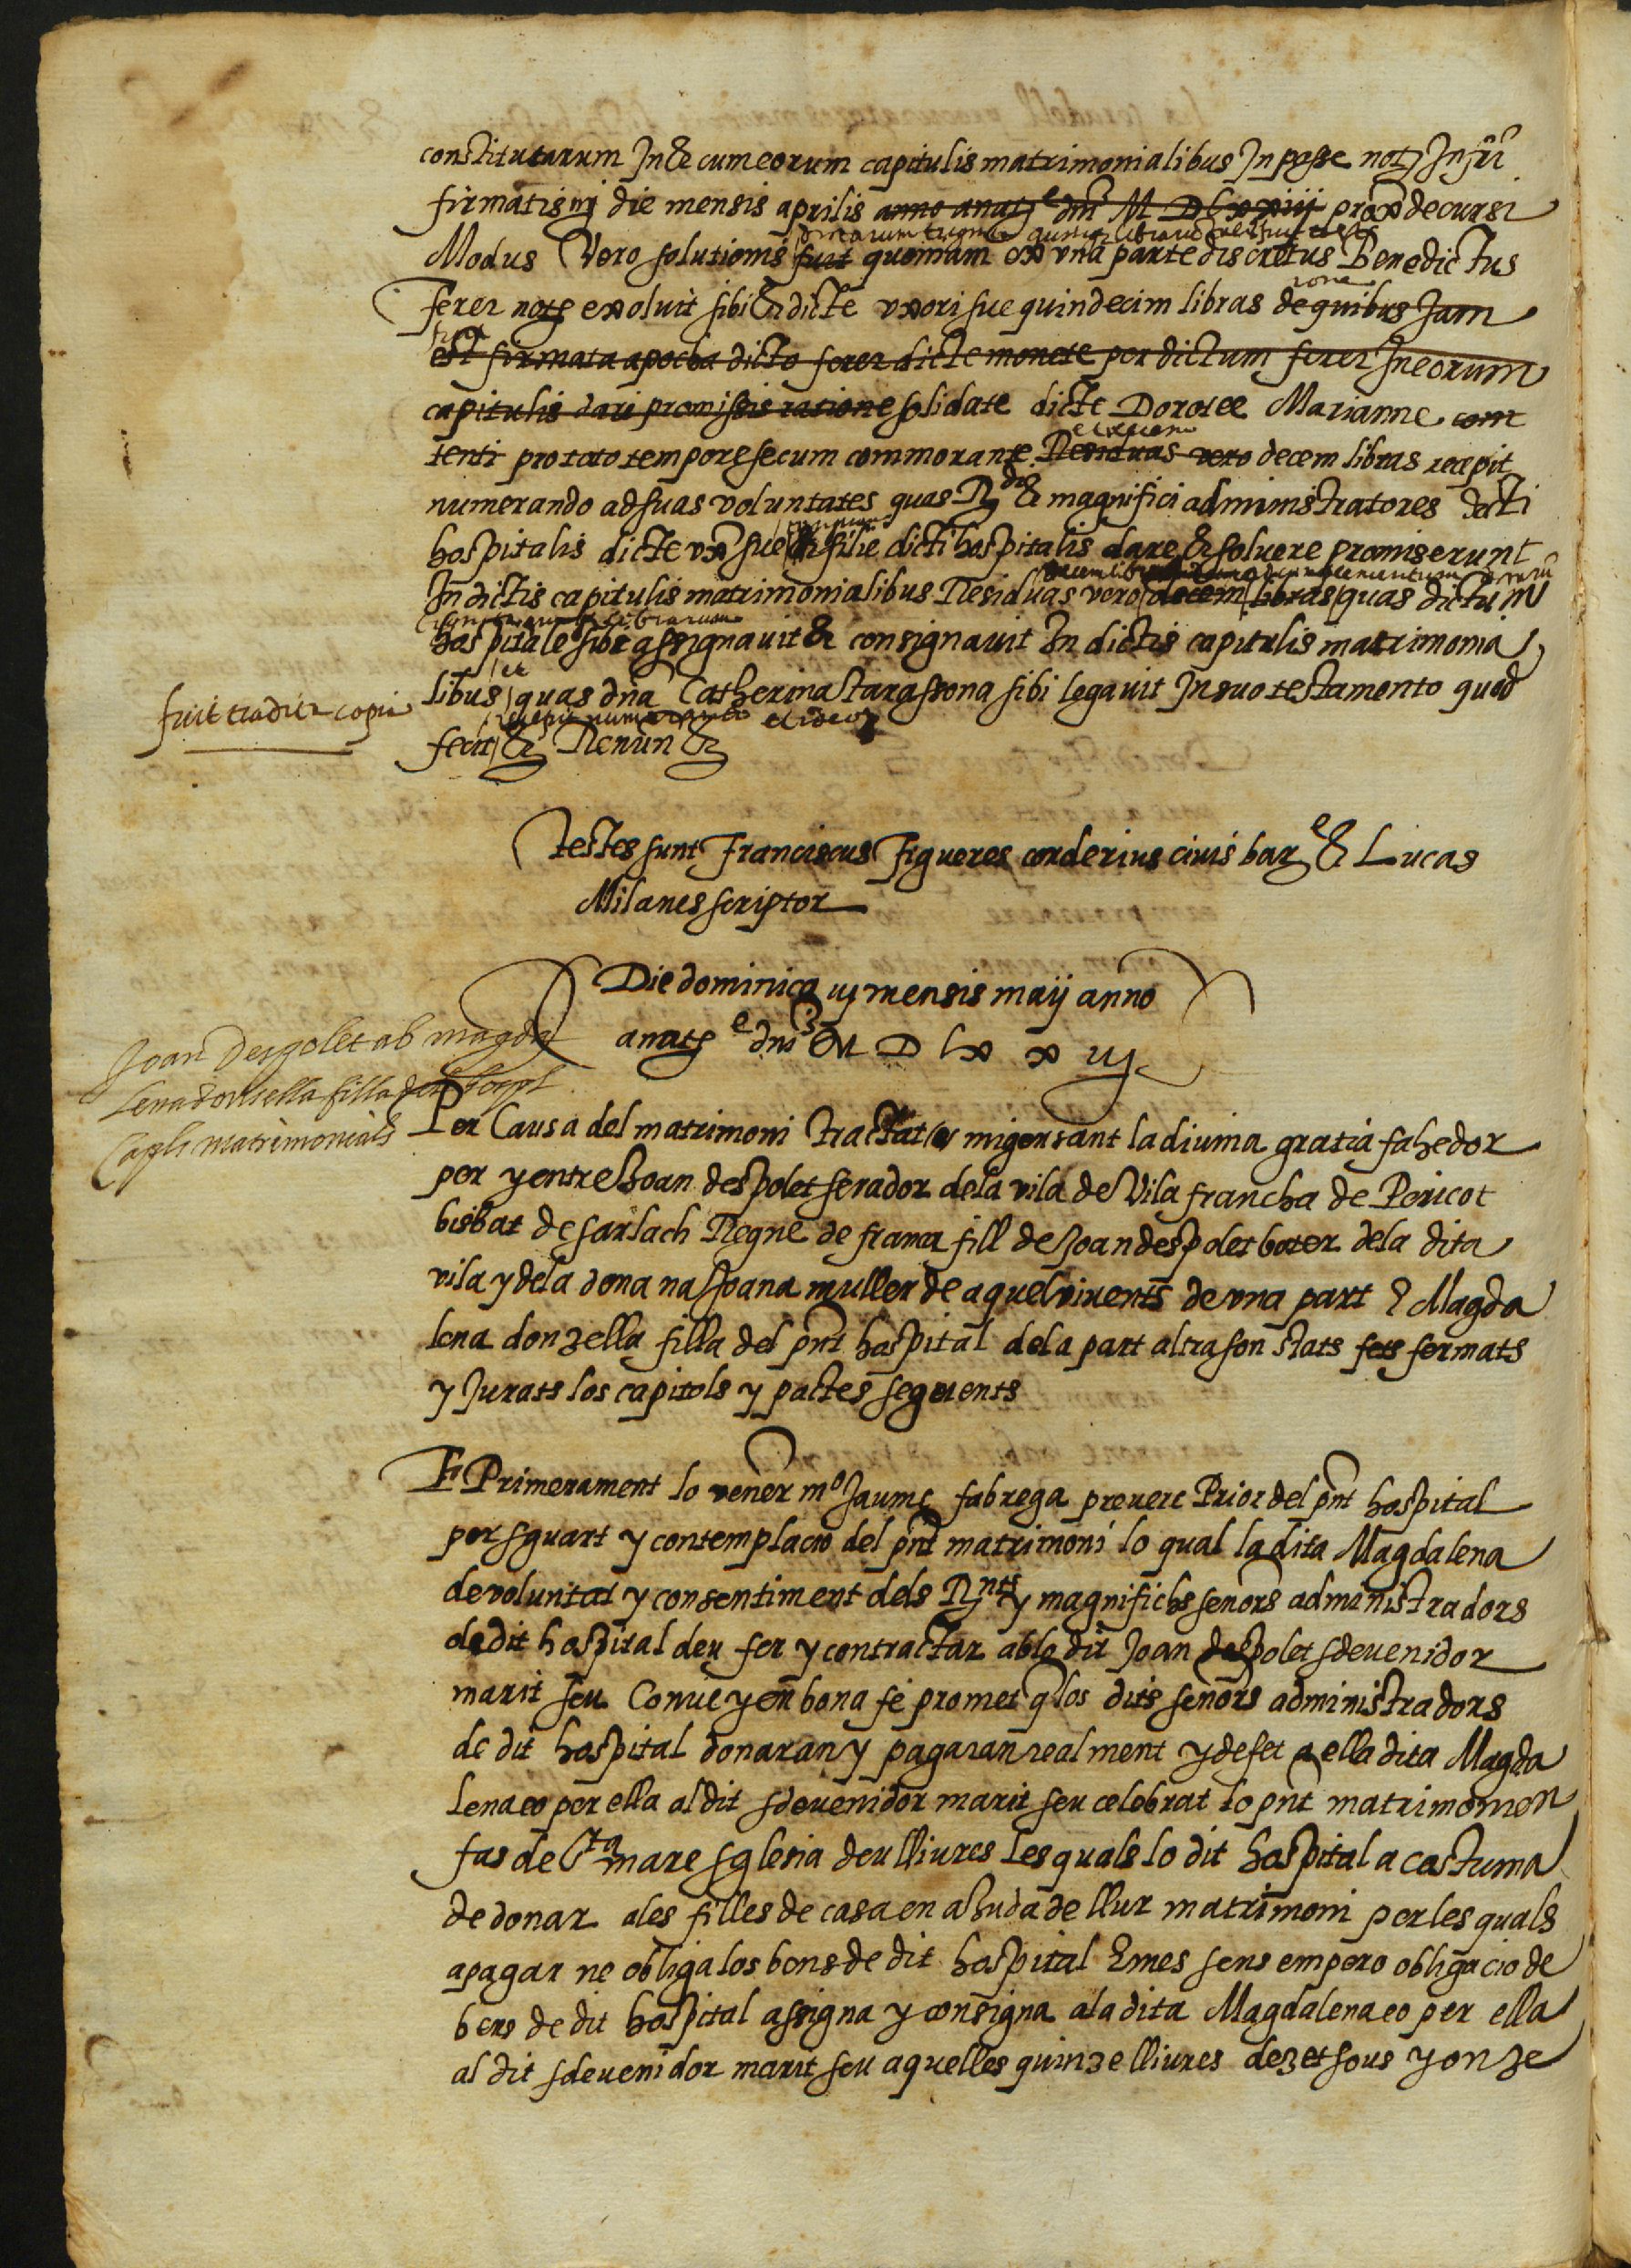 constitutarum In & cum eorum capitulis matrimonialibus In posse not Infri
firmatis iij die mensis aprilis anno a natte dni M D Lxxiij prox decursi
dictarum triginta quinque librarum
Modus Vero solutionis fuit quoniam ex vna parte discretus Benedictus
ferer nots exoluit sibi & dicte vxori sue quindecim libras de quibus Jam
est firmata apocha dicto ferer dicte monete per dictum ferer In eorum
capitulis dari promissis ratione solidate dicte Dorotee Marianne com
tenti pro toto tempore secum commorante Residuas vero decem libras recepit
numerando ad suas voluntates quas Rdi & magnifici administratores dicti
hospitalis dicte vxi sue filie dicti hospitalis dare & soluere promiserunt
In dictis capitulis matrimonialibus Residuas vero decem libras quas dictum
hospitale sibi assignauit & consignauit In dictis capitulis matrimonia
libus et quas dna Catherina Tarassona sibi legauit In suo testamento quod
recepit numerando et ideo
fecit & Renun &
fuit tradita copia
Testes sunt Franciscus Figueres corderius ciuis bare & Lucas
Milanes scriptor
Die dominica iij mensis maij anno
a nate dni M D Lx x iij
Joan Despolet ab magda
lena donsella filla del hospl
Capls matrimonials
Per Causa del matrimoni tractat y migensant la diuina gratia fahedor
per y entre Joan despolet serador dela vila de Vila francha de Pericot
bisbat de sarlach Regne de franca fill de Joan despolet boter dela dita
vila y dela dona na Joana muller de aquel viuents de vna part E Magda
lena donzella filla del pnt hospital dela part altra son stats fets fermats
y Jurats los capitols y pactes seguents
E Primerament lo vener mo Jaume fabrega preuere Prior del pnt hospital
per sguart y contemplacio del pnt matrimoni lo qual la dita Magdalena
de voluntat y consentiment dels Rnts y magnifichs senors administradors
de dit hospital deu fer y contractar ab lo dit Joan despolet sdeuenidor
marit seu Conue y en bona fe promet q los dits senors administradors
de dit hospital donaran y pagaran realment y de fet a ella dita Magda
lena eo per ella al dit sdeuenidor marit seu celebrat lo pnt matrimoni en
fas de Sta mare sglesia deu lliures les quals lo dit hospital a costuma
de donar ales filles de casa en aJuda de llur matrimoni per les quals
a pagar ne obliga los bens de dit hospital E mes sens empero obligacio de
bens de dit hospital assigna y consigna ala dita Magdalena eo per ella
al dit sdeuenidor marit seu aquelles quinze lliures dezet sous y onze